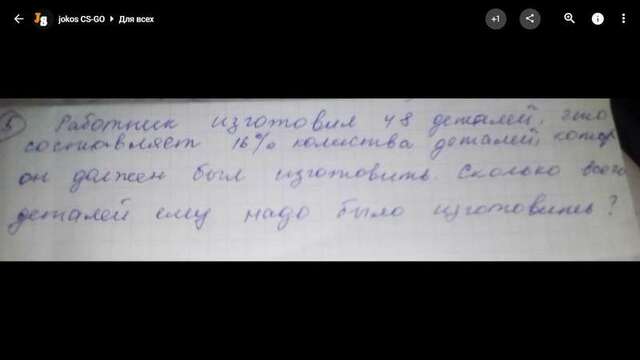 jokos CS-GO ▸ Для всех
+1
5 Работник изготовил 48 деталей, это
составляет 16% количства деталей, котор
он должен был изготовить. Сколько всего
деталей ему надо было изготовить?